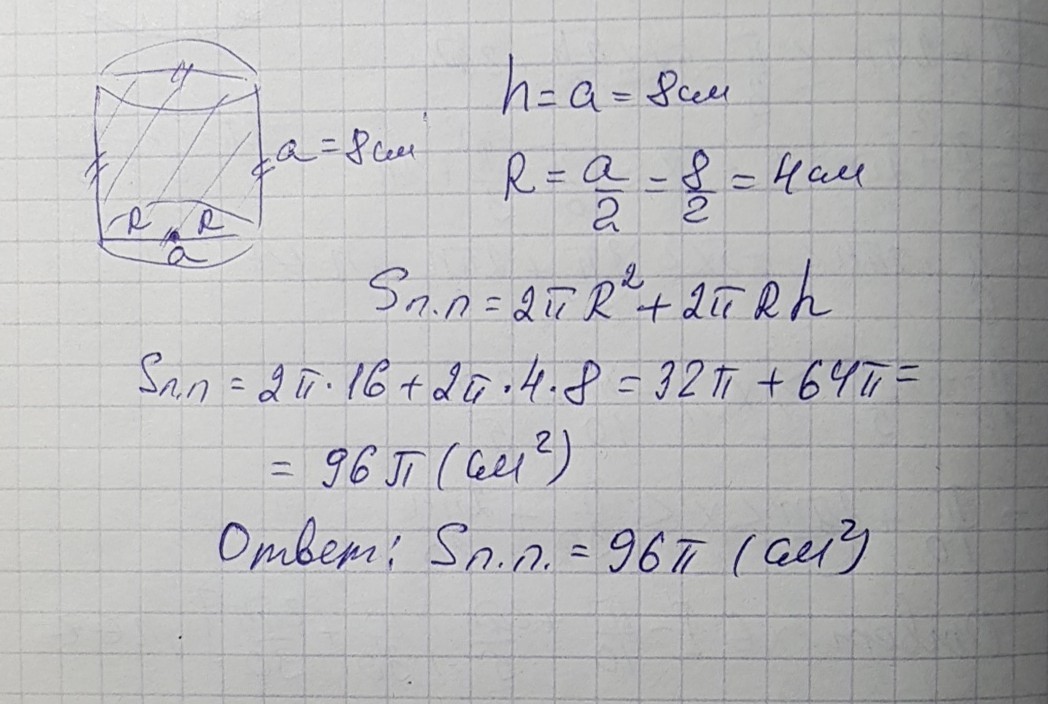 h = a = 8 см
a = 8 см
R = a/2 = 8/2 = 4 см
R R
a
Sп.п = 2πR² + 2πRh
Sп.п = 2π·16 + 2π·4·8 = 32π + 64π =
= 96π (см²)
Ответ: Sп.п. = 96π (см²)